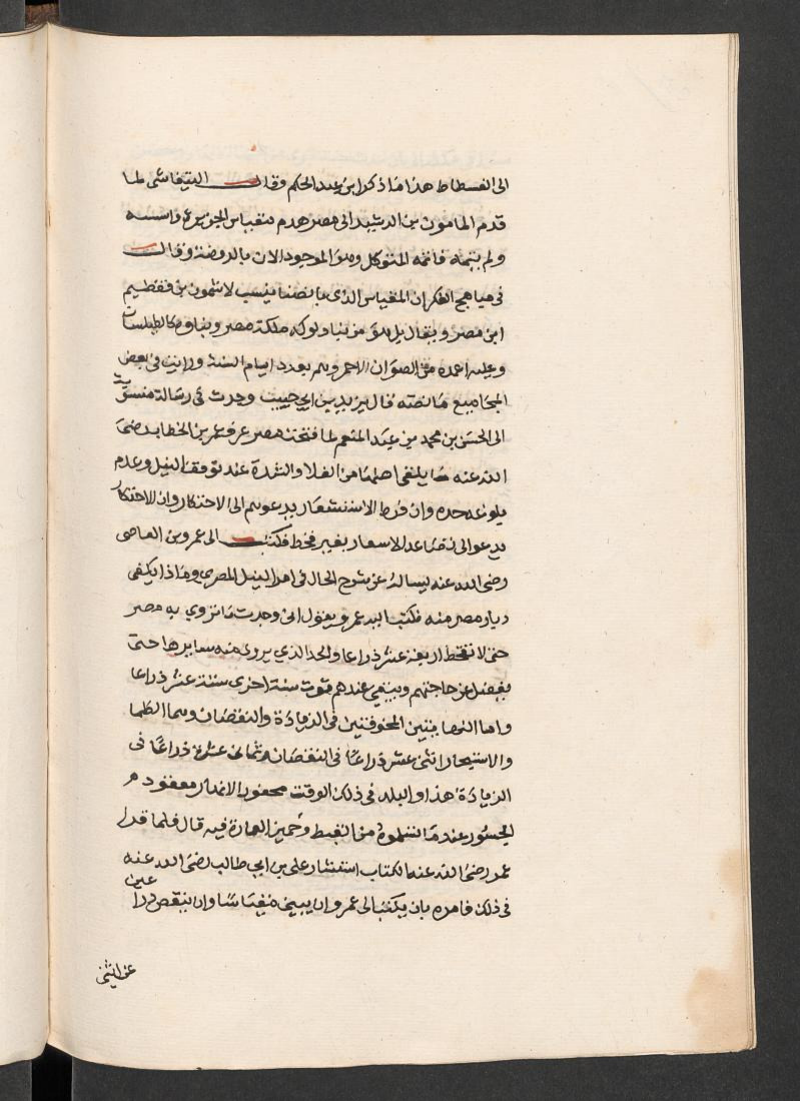 الى الفسطاط هذا ما ذكرا بن عبد الحكم وقال التيفاشى لما
قدم المامون بن الرشيد الى مصر هدم مقياس الجزيرة واسسه
ولم يتمه فاتمه المتوكل وهو الموجود الان بالروضة وقال
فى مباهج الفكر ان المقياس الذى بانصنا ينسب لاشمون بن قفطيم
ابن مصر ويقال بل هو من بنا دلوكه ملكة مصر وبناوه كالطيلسان
وعليه اعمده من الصوان الاحمر وهم بعدد ايام السنة ورايت فى بعض
المجاميع ما نصه قال يزيد بن ابى حبيب وجدت فى رسالة منسوبة
الى الحسن بن محمد بن عبد المنعم لما فتحت مصر عرف عمر بن الخطاب رضى
الله عنه ما يلقى اهلها من الغلا والشدة عند توقف النيل وعدم
بلوغه حده وان فرط الاستشعار يدعوهم الى الاحتكار وان الاحتكار
يدعو الى تصاعد الاسعار بغير قحط فكتب الى عمرو بن العاصى
رضى الله عنه يساله عن شرح الحال فى امر النيل المصرى وماذا يكفى
ديار مصر منه فكتب اليه عمرو يقول انى وجدت ما تروى به مصر
حتى لا تقحط اربعة عشر ذراعا والحد الذي يروى منه سايرها حتى
يفضل عن حاجتهم ويبقى عندهم قوت سنة اخرى ستة عشر ذراعا
واما النهايتين المخوفتين فى الزيادة والنقصان وهما الظما
والاستبحار اثنى عشر ذراعا فى النقصان وثمانى عشرة ذراعا فى
الزيادة هذا والبلد فى ذلك الوقت محفور الانهار معقود
الجسور عند ما تسلموه من القبط وخمير العمارة فيه قال فلما قرا
عمر رضى الله عنه الكتاب استشار على بن ابى طالب رضى الله عنه
فى ذلك فامره بان يكتب الى عمر وان يبنى مقياسا وان ينقص ذراعين
عن اثنى